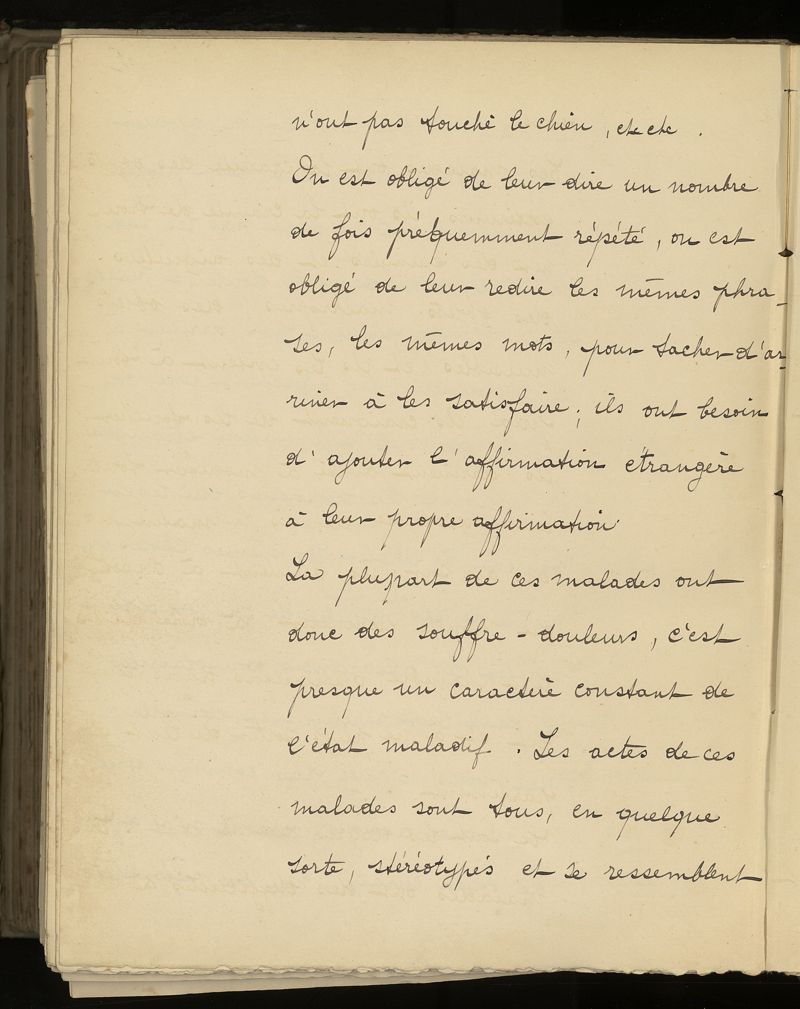 n'ont pas touché le chien, etc etc.
On est obligé de leur dire un nombre
de fois fréquemment répété, on est
obligé de leur redire les mêmes phra-
ses, les mêmes mots, pour tacher d'ar-
river à les satisfaire; ils ont besoin
d'ajouter l'affirmation étrangère
à leur propre affirmation.
La plupart de ces malades ont
donc des souffre-douleurs, c'est
presque un caractère constant de
l'état maladif. Les actes de ces
malades sont tous, en quelque
sorte, stéréotypés et se ressemblent